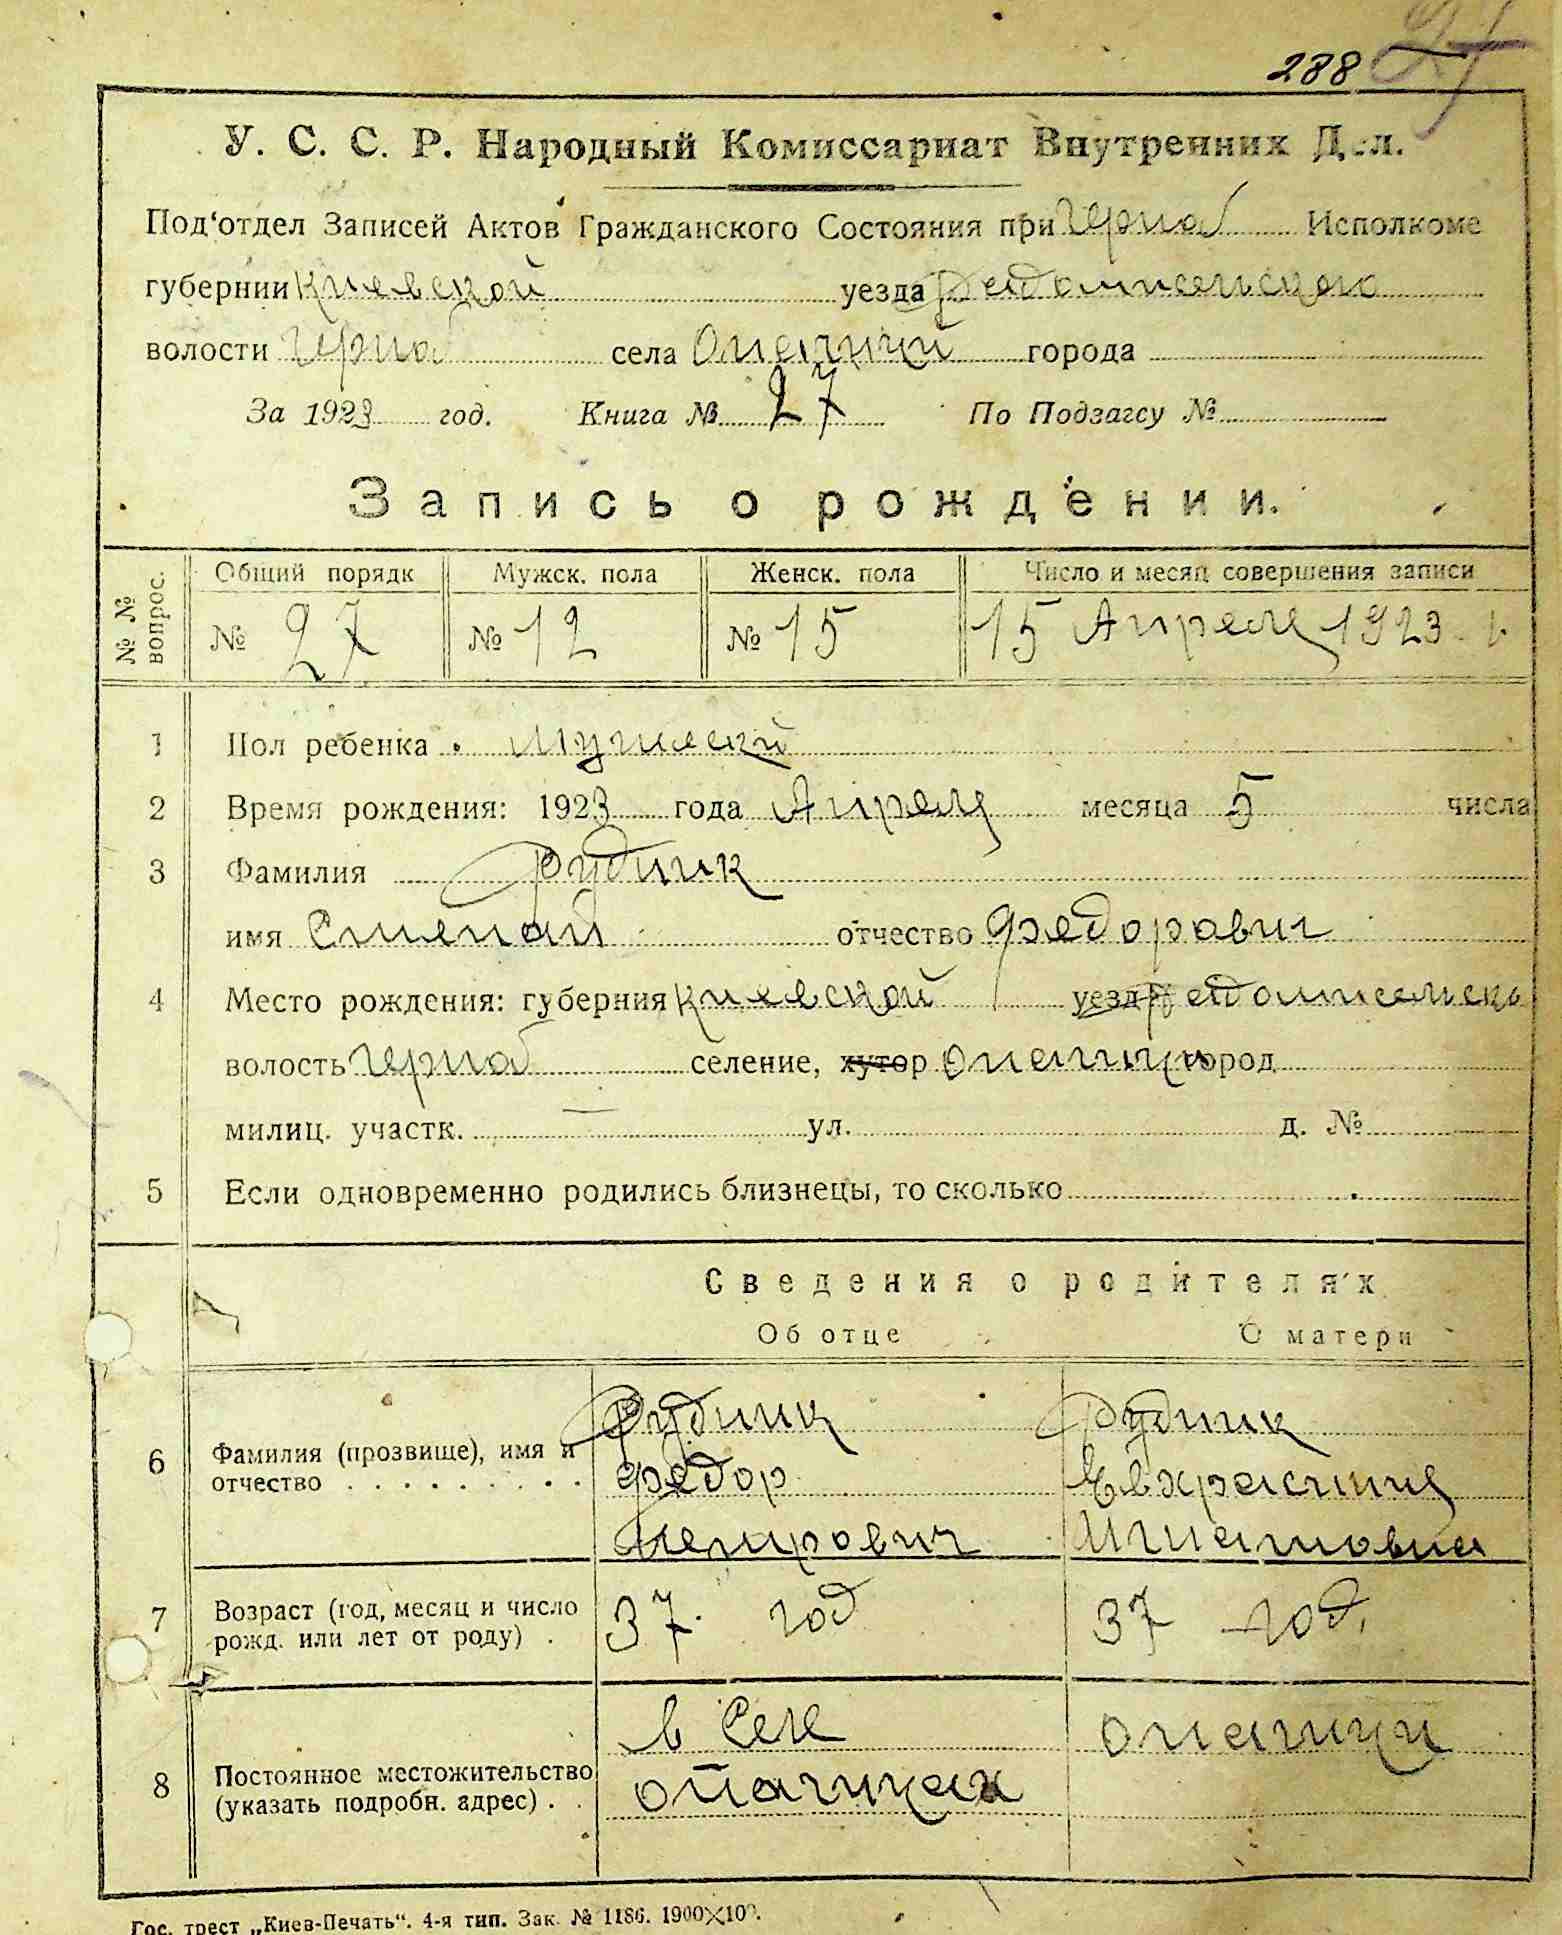 288 27
У. С. С. Р. Народный Комиссариат Внутренних Дел.
Под'отдел Записей Актов Гражданского Состояния при Черноб Исполкоме
губернии Киевской уезда Редомисельского
волости Черноб села Опачичи города
За 1923 год. Книга № 27 По Подзагсу №
Запись о рождении.
№ № вопрос. Общий порядк Мужск. пола Женск. пола Число и месяц совершения записи
№ 27 № 12 № 15 15 Апреля 1923 г.
1 Пол ребенка Мужеский
2 Время рождения: 1923 года Апреля месяца 5 числа
3 Фамилия Рудник
имя Степан отчество Федорович
4 Место рождения: губерния Киевской уезд Редомисельско
волость Черноб селение, хутор Опачичи город
милиц. участк. — ул. д. №
5 Если одновременно родились близнецы, то сколько
Сведения о родителях
Об отце О матери
6 Фамилия (прозвище), имя и отчество Рудник Рудник
Федор Евхрасиния
Петрович Игнатовна
7 Возраст (год, месяц и число рожд. или лет от роду) 37 год 37 год.
8 Постоянное местожительство (указать подробн. адрес) в селе Опачичи
Опачичах
Гос. трест „Киев-Печать“. 4-я тип. Зак. № 1186. 1900×100.